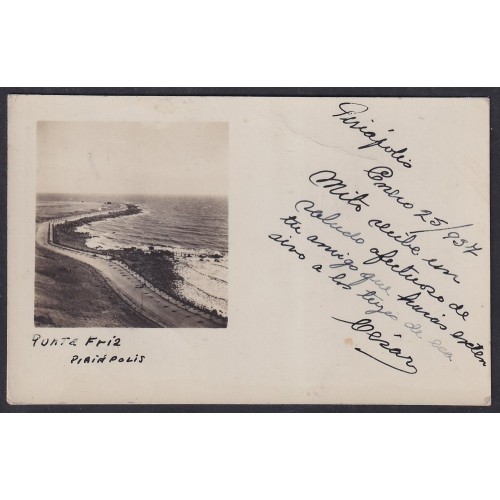 Punta Fria
Piriápolis
Piriápolis
Enero 25/937
Mito recibe un
saludo afectuoso de
tu amigo que harás exten
sivo a los tuyos de esa
César